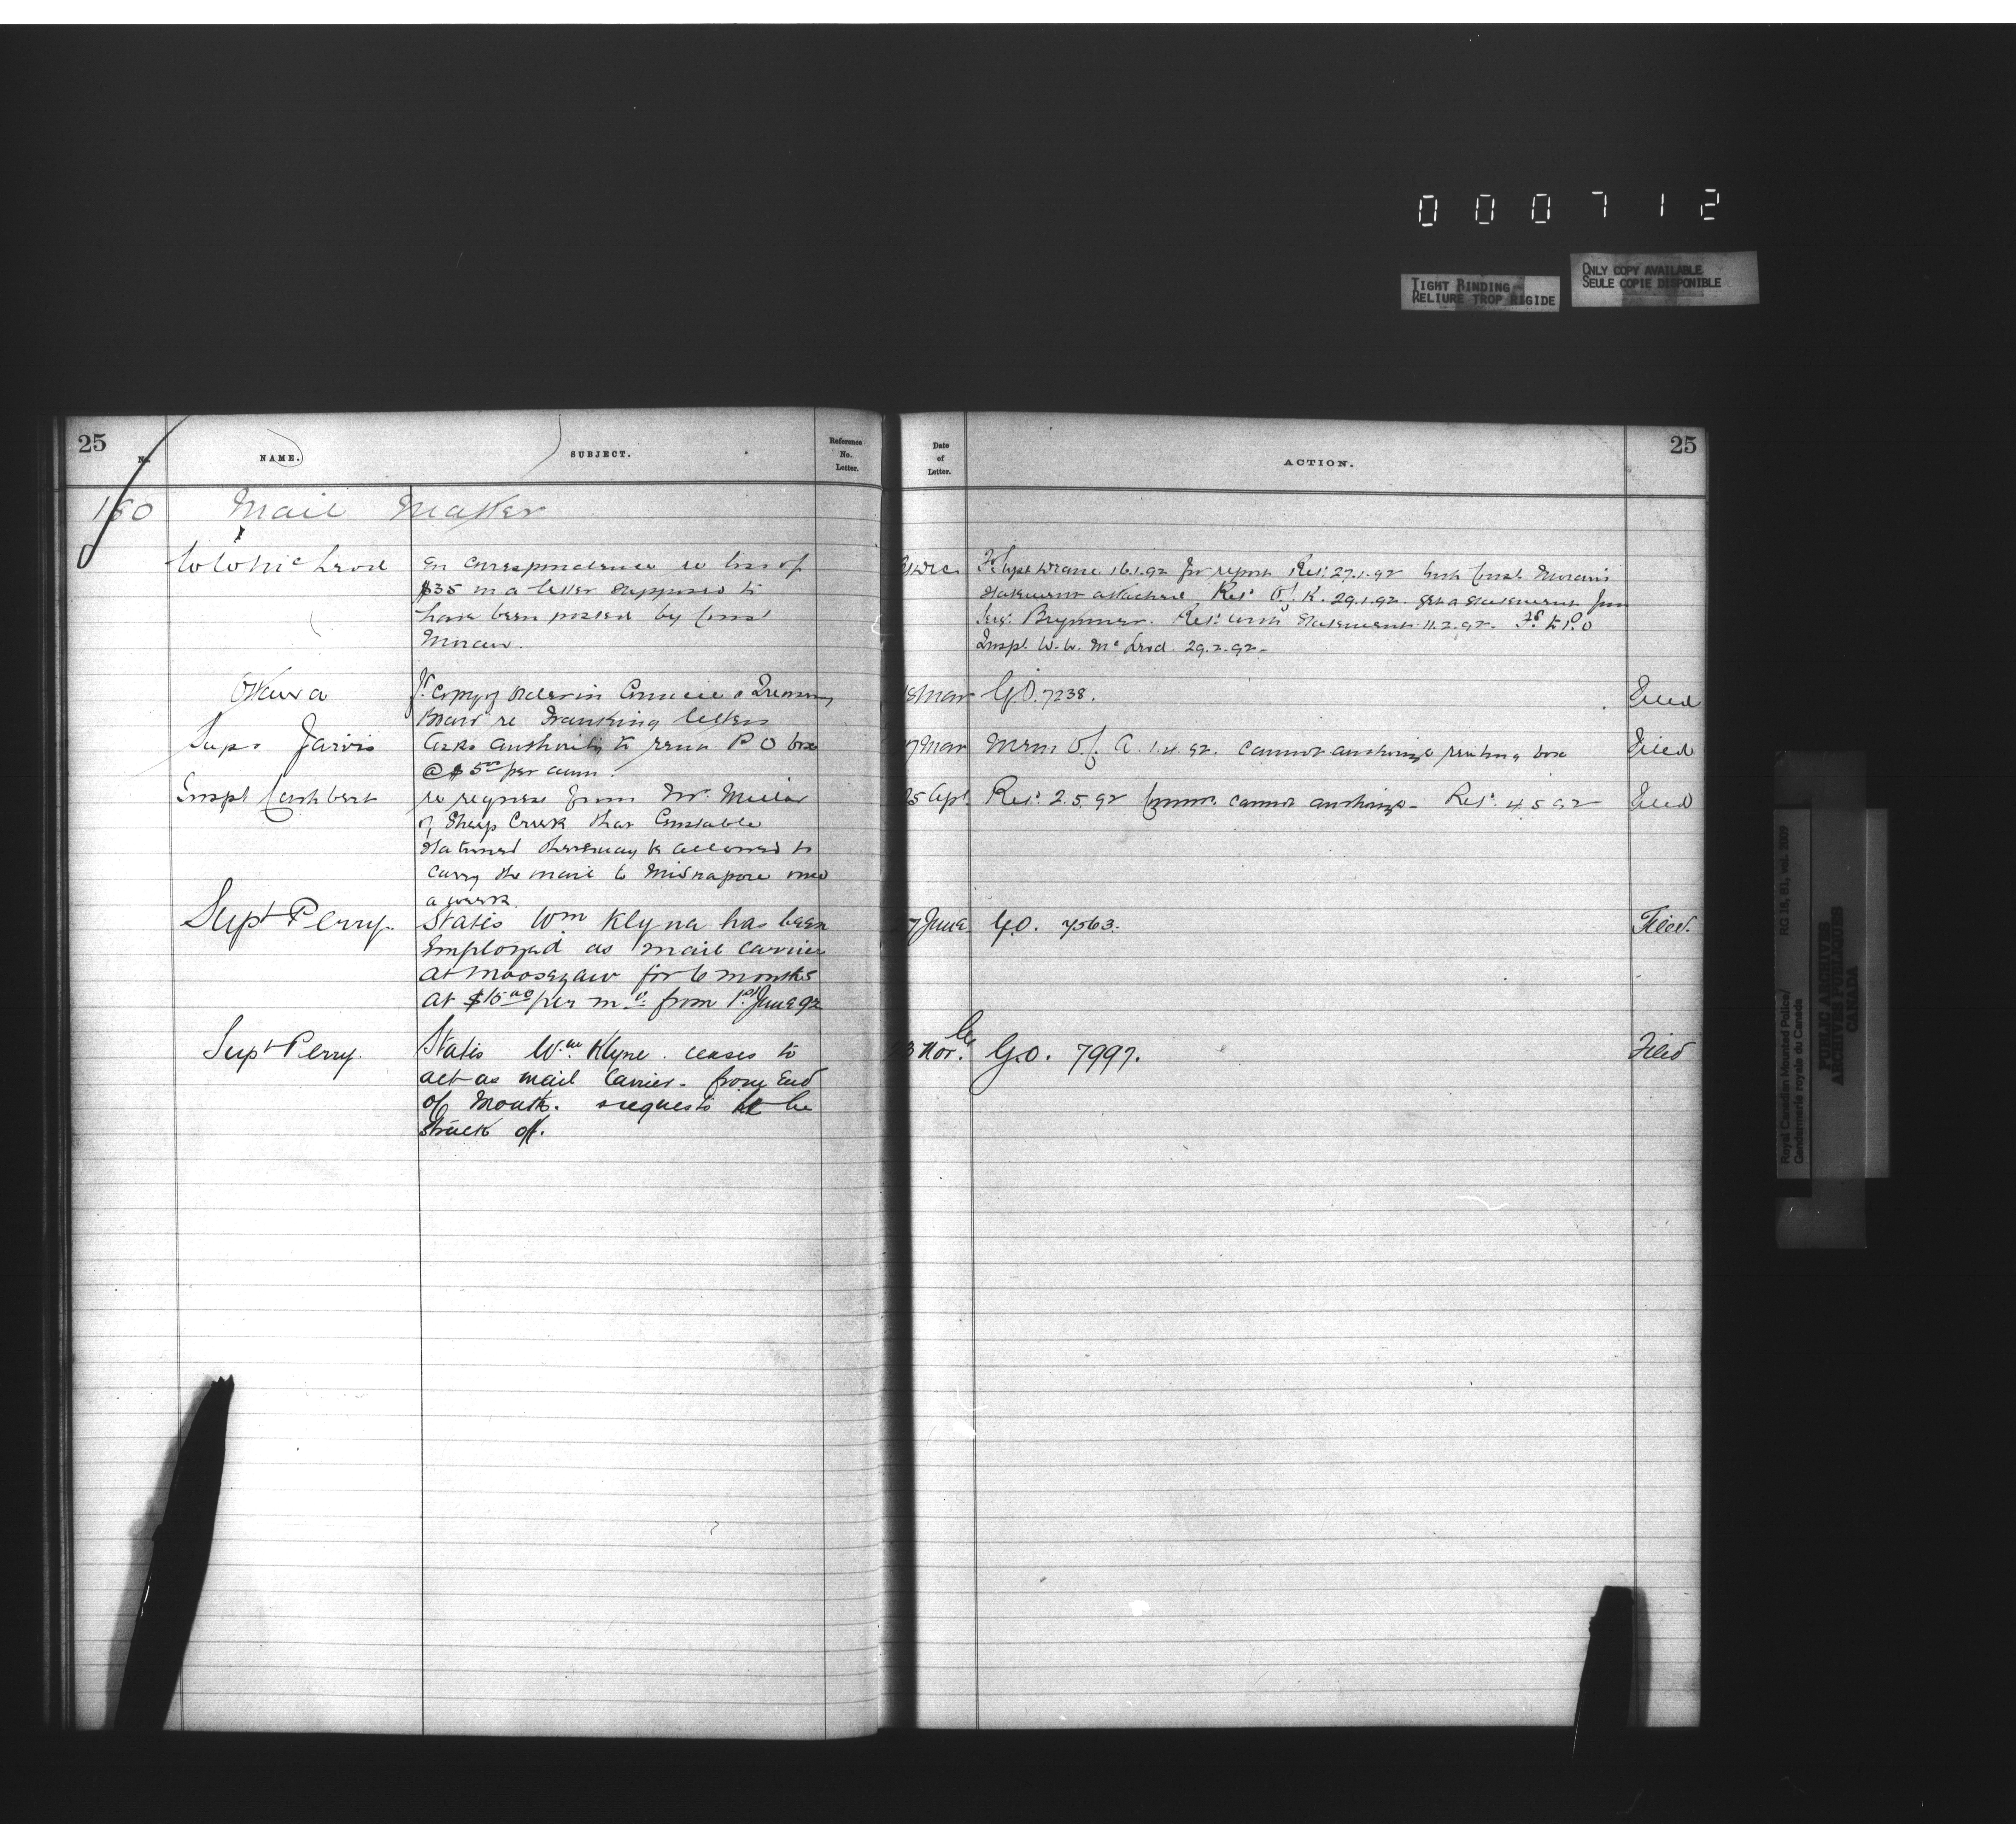 000712
TIGHT BINDING
RELIURE TROP RIGIDE
ONLY COPY AVAILABLE
SEULE COPIE DISPONIBLE
25
No.
NAME.
SUBJECT.
Reference
No.
Letter.
Date
of
Letter.
ACTION.
25
180 Mail Matter
W W McLeod
In correspondence re loss of
$35 in a letter supposed to
have been posted by Const
16.1.92 for report Ret'd 27.1.92 with Const
statement attached Ret'd O/ K. 29.1.92 get a statement from
Brymner. Ret'd with statement 11.2.92. Fd to P.O
Inspt. W. W. McLeod. 29.2.92
Ottawa
copy of Order in Council & Treasury
Board re Franking letters
18 Mar
G.O. 7238.
Filed
Supt Jarvis
Asks authority to rent P O box
@ $5 00 per ann.
27 Mar
Mem O/C A. 1.4.92. cannot authorize renting box
Filed
Inspt Cuthbert
re request from Mr. Millar
of Sheep Creek that Constable
stationed there may be allowed to
carry the mail to Midnapore once
a week.
25 Apl
Ret'd 2.5.92 Comm. cannot authorize - Ret'd 4.5.92
Filed
Supt Perry.
States Wm Klyne has been
Employed as mail carrier
at Moosejaw for 6 months
at $15 00 per mo from 1st June 92
7 June
G.O. 7563.
Filed.
Supt Perry.
States Wm. Klyne. ceases to
act as mail Carrier. from End
of Month. requests he be
struck off.
Nov.
G.O. 7997.
Filed
Royal Canadian Mounted Police/
Gendarmerie royale du Canada
RG 18, B1, vol. 2009
PUBLIC ARCHIVES
ARCHIVES PUBLIQUES
CANADA